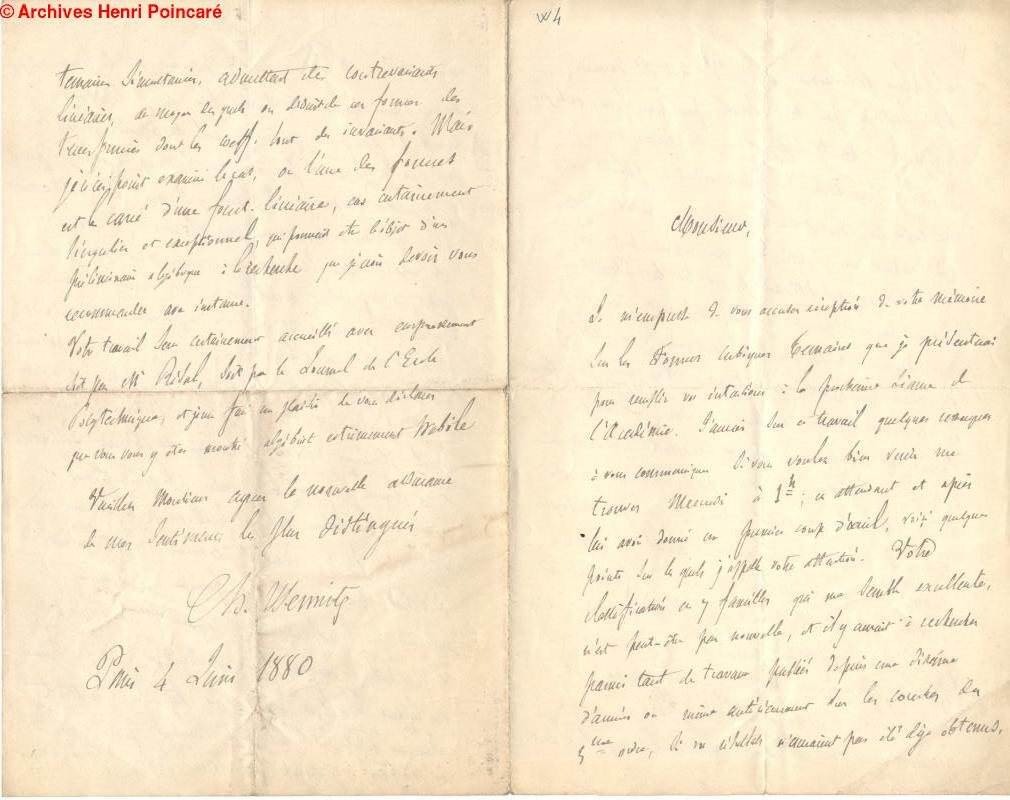 © Archives Henri Poincaré
W4
Monsieur,
Je m'empresse de vous accuser réception de votre mémoire
sur les formes cubiques ternaires que je présenterai
pour remplir vos intentions à la prochaine séance de
l'Académie. J'aurais sur ce travail quelques remarques
à vous communiquer si vous voulez bien venir me
trouver Mercredi à 1h; en attendant et après
lui avoir donné un premier coup d'œil, voici quelques
points sur lesquels j'appelle votre attention. Votre
classification en 7 familles qui me semble excellente,
n'est peut-être pas nouvelle, et il y aurait à rechercher
parmi tant de travaux publiés depuis une dizaine
d'années ou même antérieurement sur les courbes du
3ème ordre, si vos résultats n'auraient pas été déjà obtenus.
ternaires simultanées, admettant des contrevariants
linéaires, au moyen desquels on déduit de ces formes des
transformées dont les coeff. sont des invariants. Mais
je n'ai point examiné le cas, où l'une des formes
est le carré d'une fonct. linéaire, cas certainement
singulier et exceptionnel, qui pourrait être l'objet d'un
préliminaire algébrique à la recherche que j'avais devoir vous
recommander avec instance.
Votre travail sera certainement accueilli avec empressement
soit par Mr Résal, soit par le Journal de l'Ecole
Polytechnique, et je me fais un plaisir de vous déclarer
que vous vous y êtes montré algébriste extrêmement habile
Veuillez Monsieur agréer la nouvelle assurance
de mes sentiments les plus distingués
Ch. Hermite
Paris 4 Juin 1880